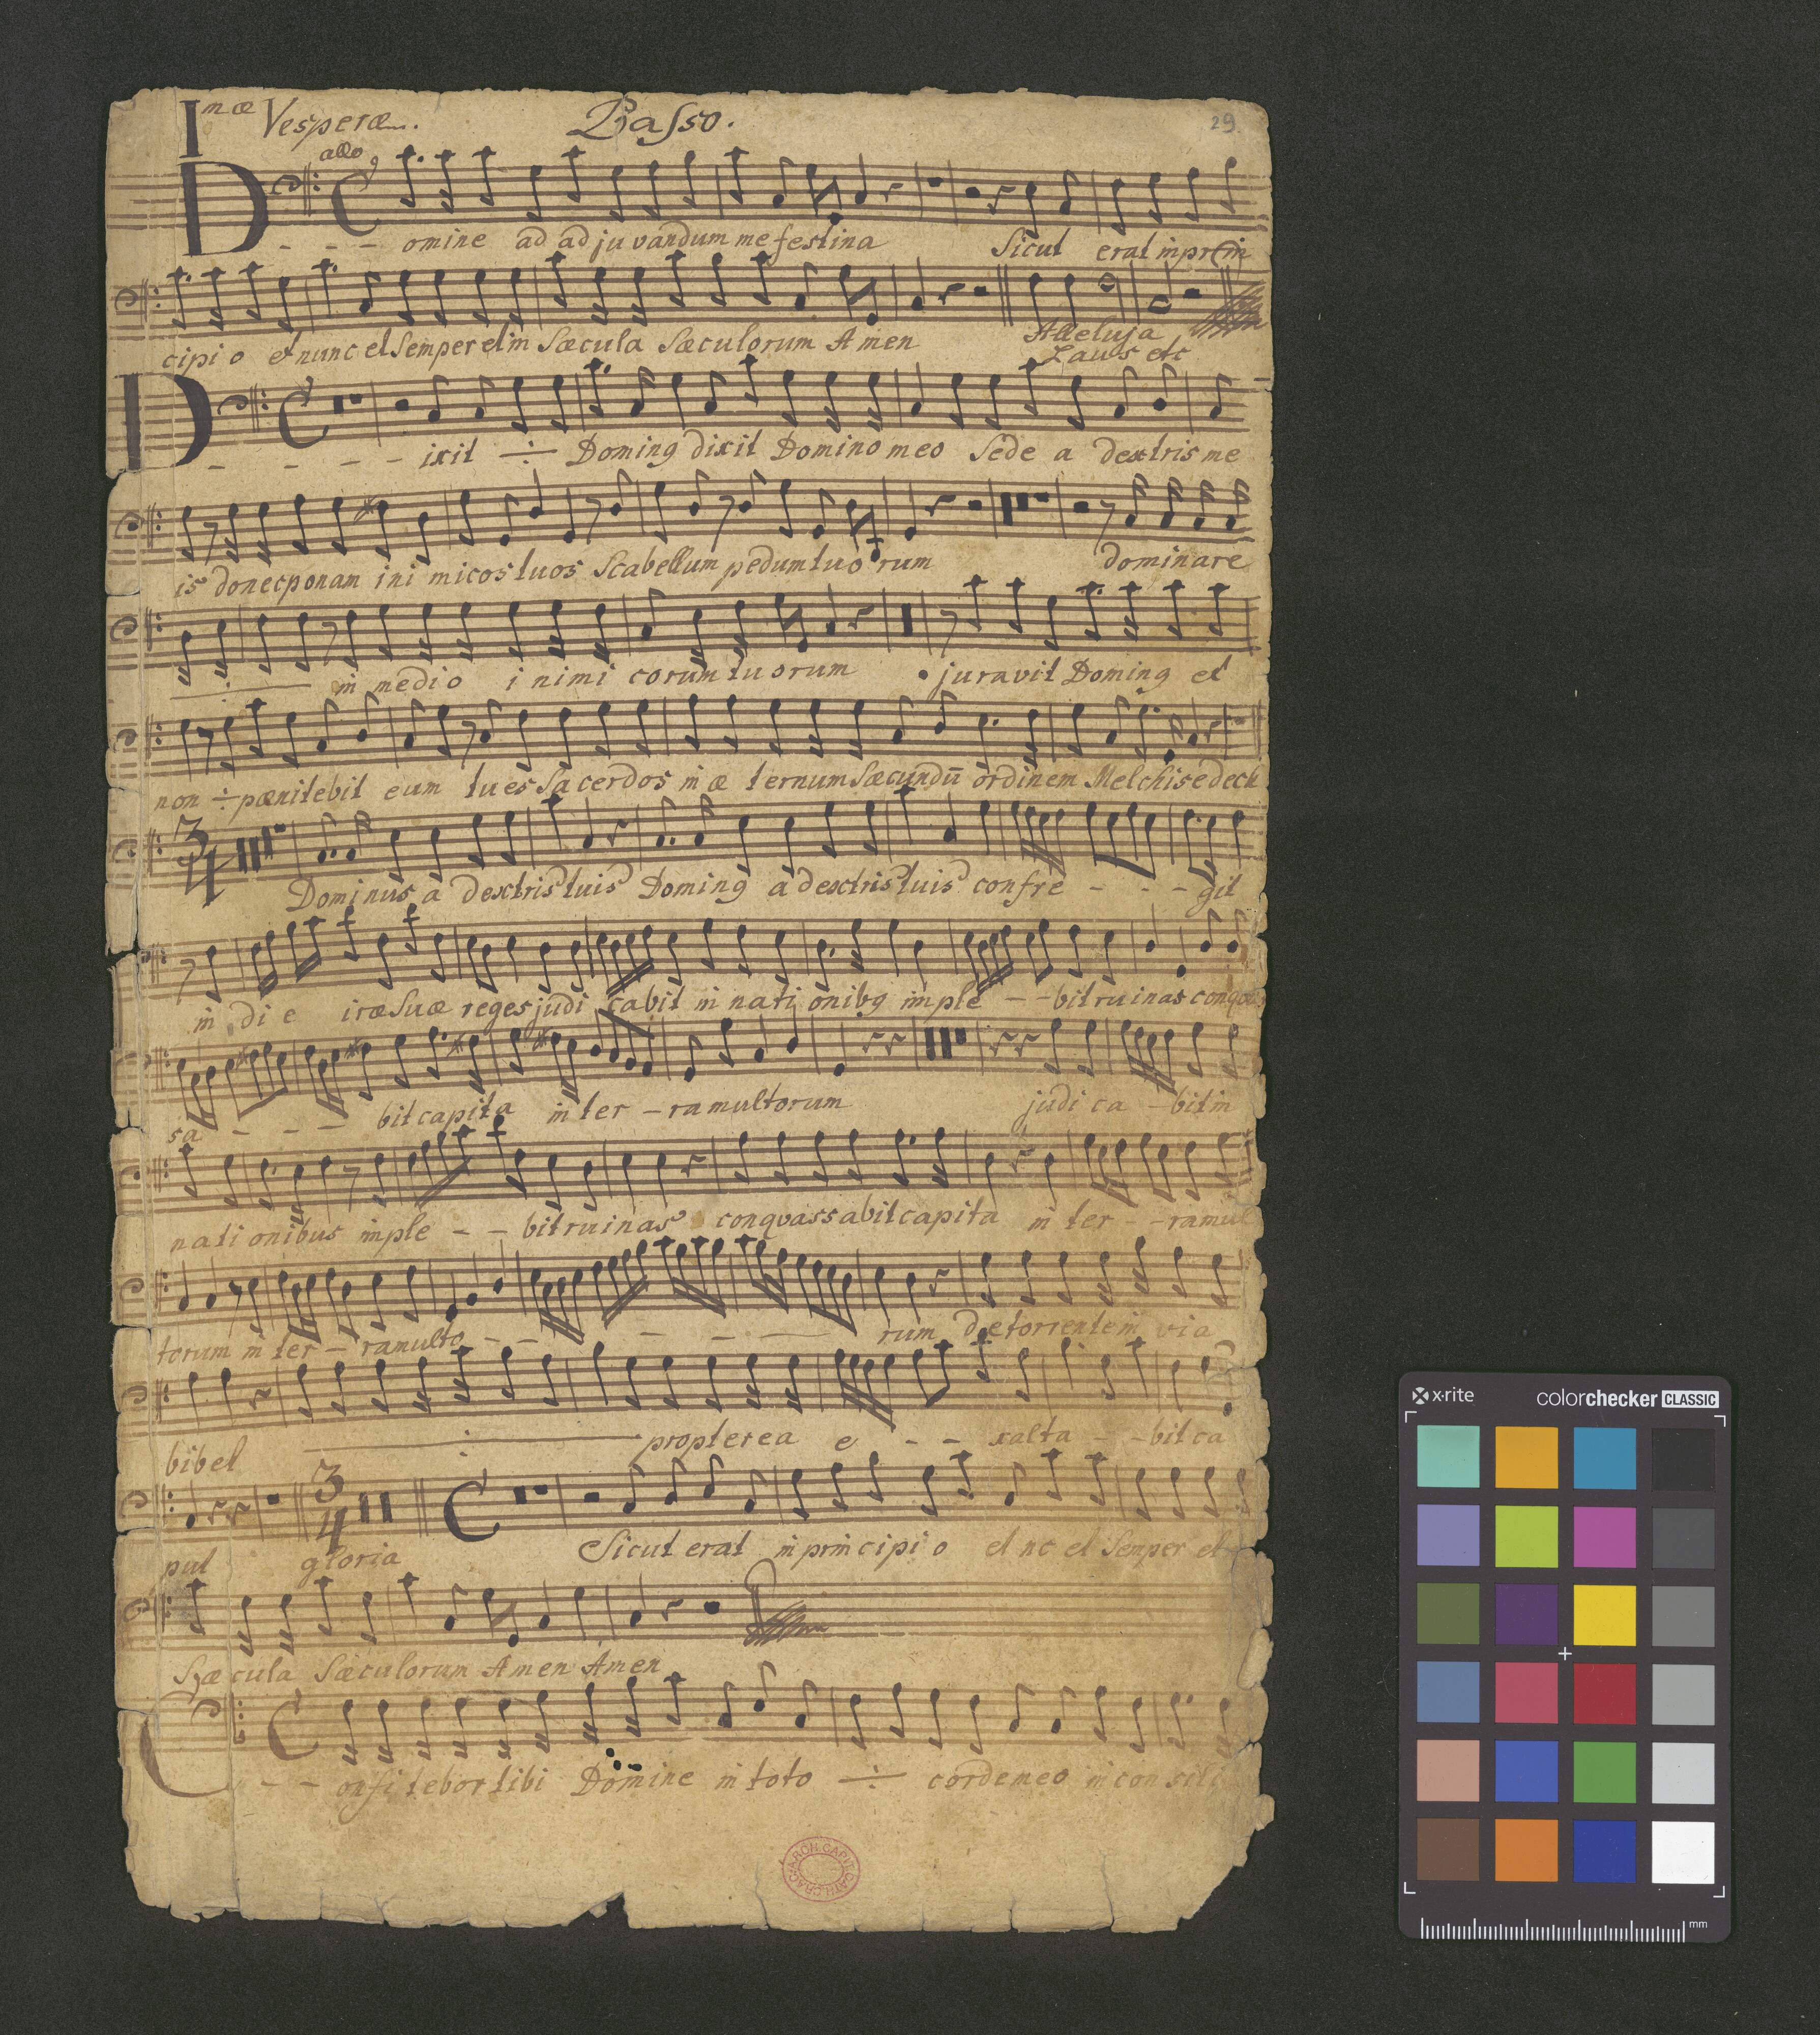 Imæ Vesperæ. Basso. 29
allo
D - - - omine ad adjuvandum me festina Sicut erat in prin
cipio et nunc et Semper et in Sæcula Sæculorum Amen Alleluja
Laus etc
D - - - - ixit ÷ Doming dixit Domino meo Sede a dextris me
is donec ponam inimicos tuos Scabellum pedum tuorum dominare
÷ in medio inimicorum tuorum juravit Doming et
non ÷ pænitebit eum tu es Sacerdos in æternum Sæcundū ordinem Melchisedech
3/4
Dominus a dextris tuis Doming a dextris tuis confre - - - git
in die iræ Suæ reges judicabit in nationibg imple - - bit ruinas conqua
sa - - - bit capita in ter - ra multorum judica - bit in
nationibus imple - - bit ruinas conquassabit capita in ter - - ra mul
torum in ter - ra multo - - - - - rum De torrentem via
bibet ÷ propterea e - - xalta - - bit ca
3/4
put gloria Sicut erat in principio et nc et Semper et
Sæcula Sæculorum Amen Amen
C - - onfitebor tibi Domine in toto ÷ corde meo in consili
ARCH. CAPIT. CATH. CRAC.
x-rite colorchecker CLASSIC
mm